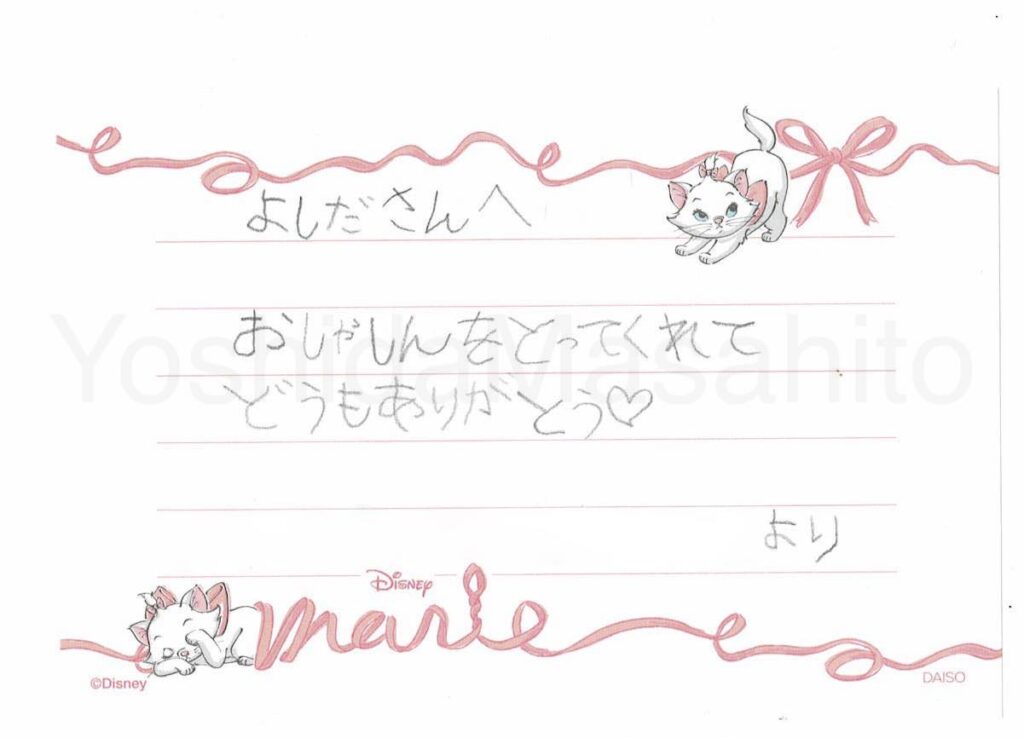 よしださんへ
おしゃしんをとってくれて
どうもありがとう♡
より
YoshidaMasahito
Disney
marie
©Disney
DAISO